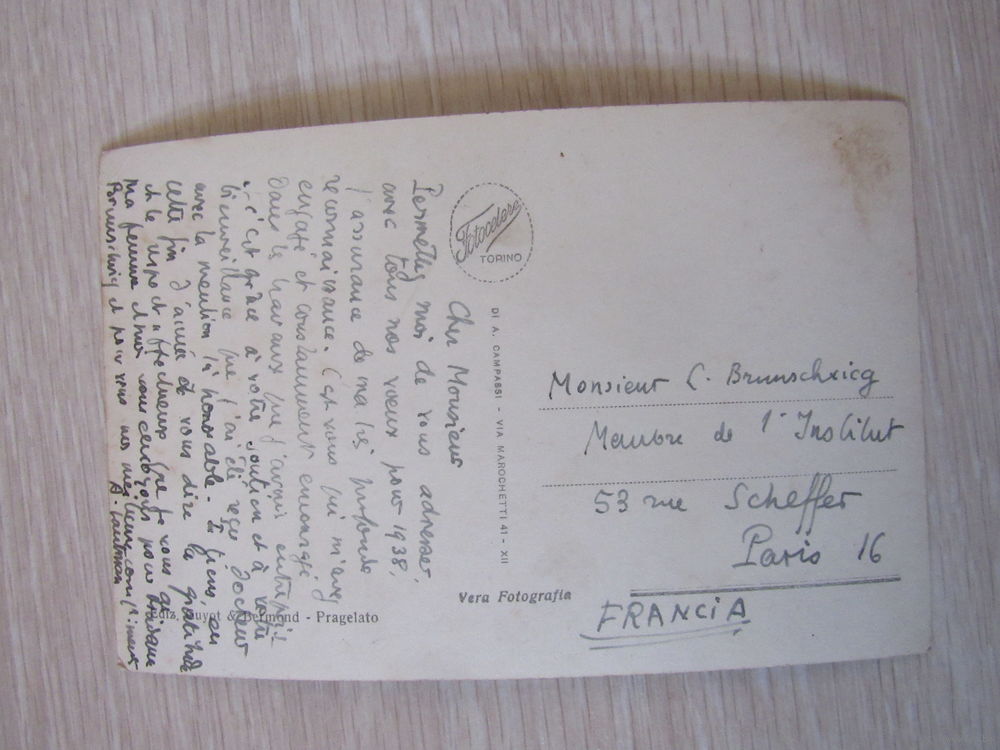 Cher Monsieur
Permettez moi de vous adresser,
avec tous nos voeux pour 1938,
l'assurance de ma très profonde
reconnaissance. C'est vous qui m'avez
engagé et constamment encouragé
dans les travaux que j'avais entrepris
c'est grâce à votre soutien et à votre
bienveillance que j'ai été reçu docteur
avec la mention très honorable. Je tiens, en
cette fin d'année à vous dire la gratitude
et le respect affectueux que je vous ai
Ma femme et moi vous envoyons pour Madame
Brunschvicg et pour vous nos meilleurs compliments
A. Lautman
Fotocelere
TORINO
DI A. CAMPASSI - VIA MAROCHETTI 41 - XII
Vera Fotografia
Ediz. Guyot & Bermond - Pragelato
Monsieur L. Brunschvicg
Membre de l'Institut
53 rue Scheffer
Paris 16
FRANCIA